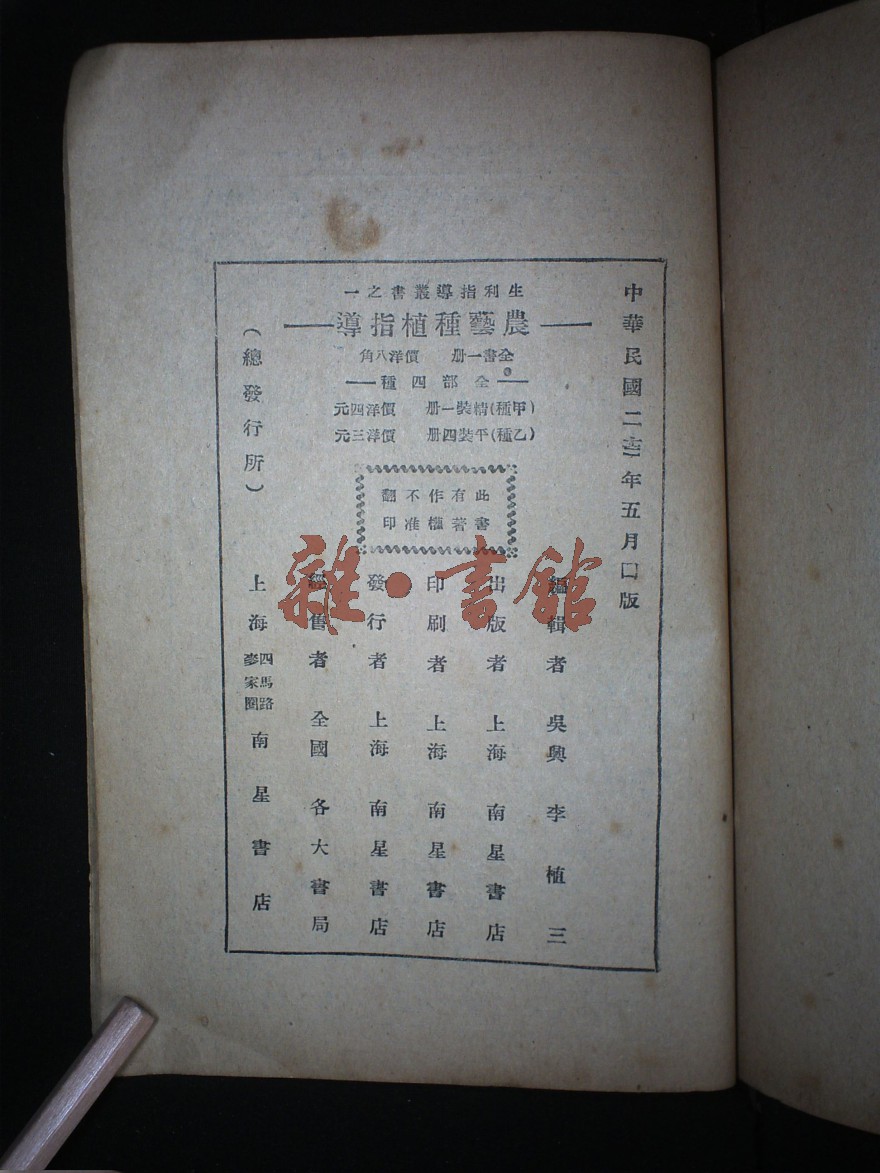 中華民國二年五月口版
生利指導叢書之一
農藝種植指導
全書一册 價洋八角
全部四種
(甲種)精裝一册 價洋四元
(乙種)平裝四册 價洋三元
此書
有著
作權
不准
翻印
編輯者 吳興 李植三
出版者 上海 南星書店
印刷者 上海 南星書店
發行者 上海 南星書店
經售者 全國各大書局
(總發行所) 上海 四馬路麥家圈 南星書店
雜·書館